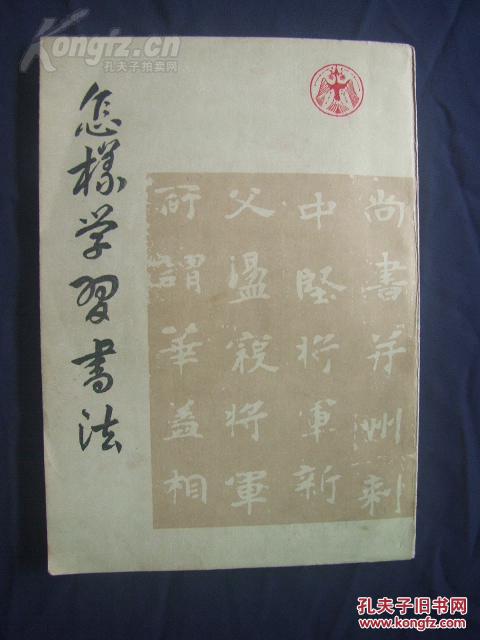 Kongfz.cn
孔夫子拍卖网
怎样学习书法
尚書并州刺
中堅將軍新
父溫寇將軍
所謂華蓋相
孔夫子旧书网
www.kongfz.com